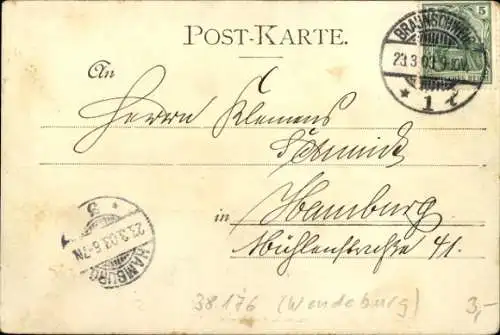 POST-KARTE.
5
BRAUNSCHWEIG
23.3.03. 9-10V.
* 1 t
An
Herrn Klemens
Schmidt
in Hamburg
Mühlenstraße 41.
* 3
23.3.03. 6-7N
HAMBURG
38176 (Wendeburg) 3,-